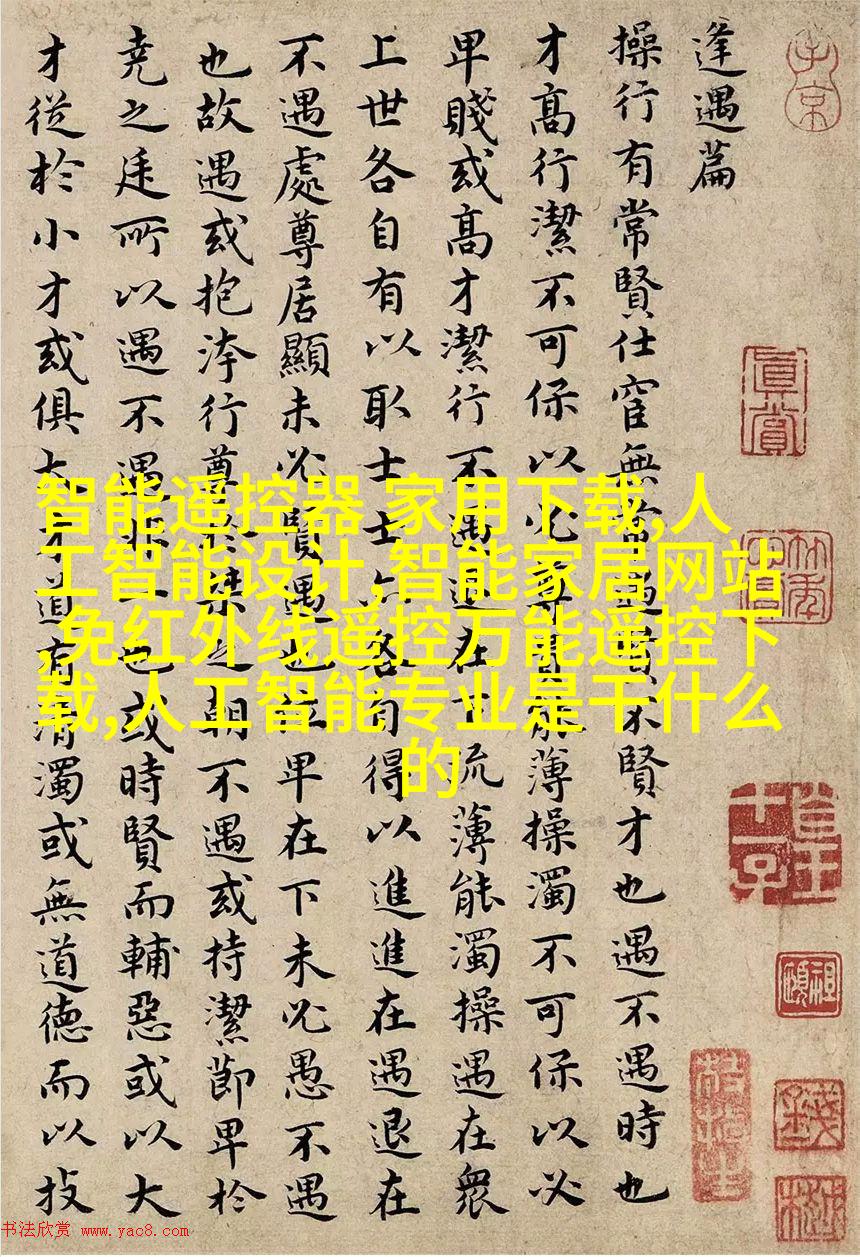 逢遇篇
操行有常賢仕宦無常遇賢不賢才也遇不遇時也
才高行潔不可保以必尊貴能薄操濁不可保以必
卑賤或高才潔行不遇退在下流薄能濁操遇在衆
上世各自有以取士士亦各自得以進進在遇退在
不遇處尊居顯未必賢遇也位卑在下未必愚不遇
也故遇或抱洿行尊於桀之朝不遇或持潔節卑於
堯之廷所以遇不遇非一也或時賢而輔惡或以大
才從於小才或俱大才道有清濁或無道德而以技
子京
真賞
智能遥控器 家用下载,人
工智能设计,智能家居网站
,免红外线遥控万能遥控下
载,人工智能专业是干什么
的
书法欣赏 www.yac8.com